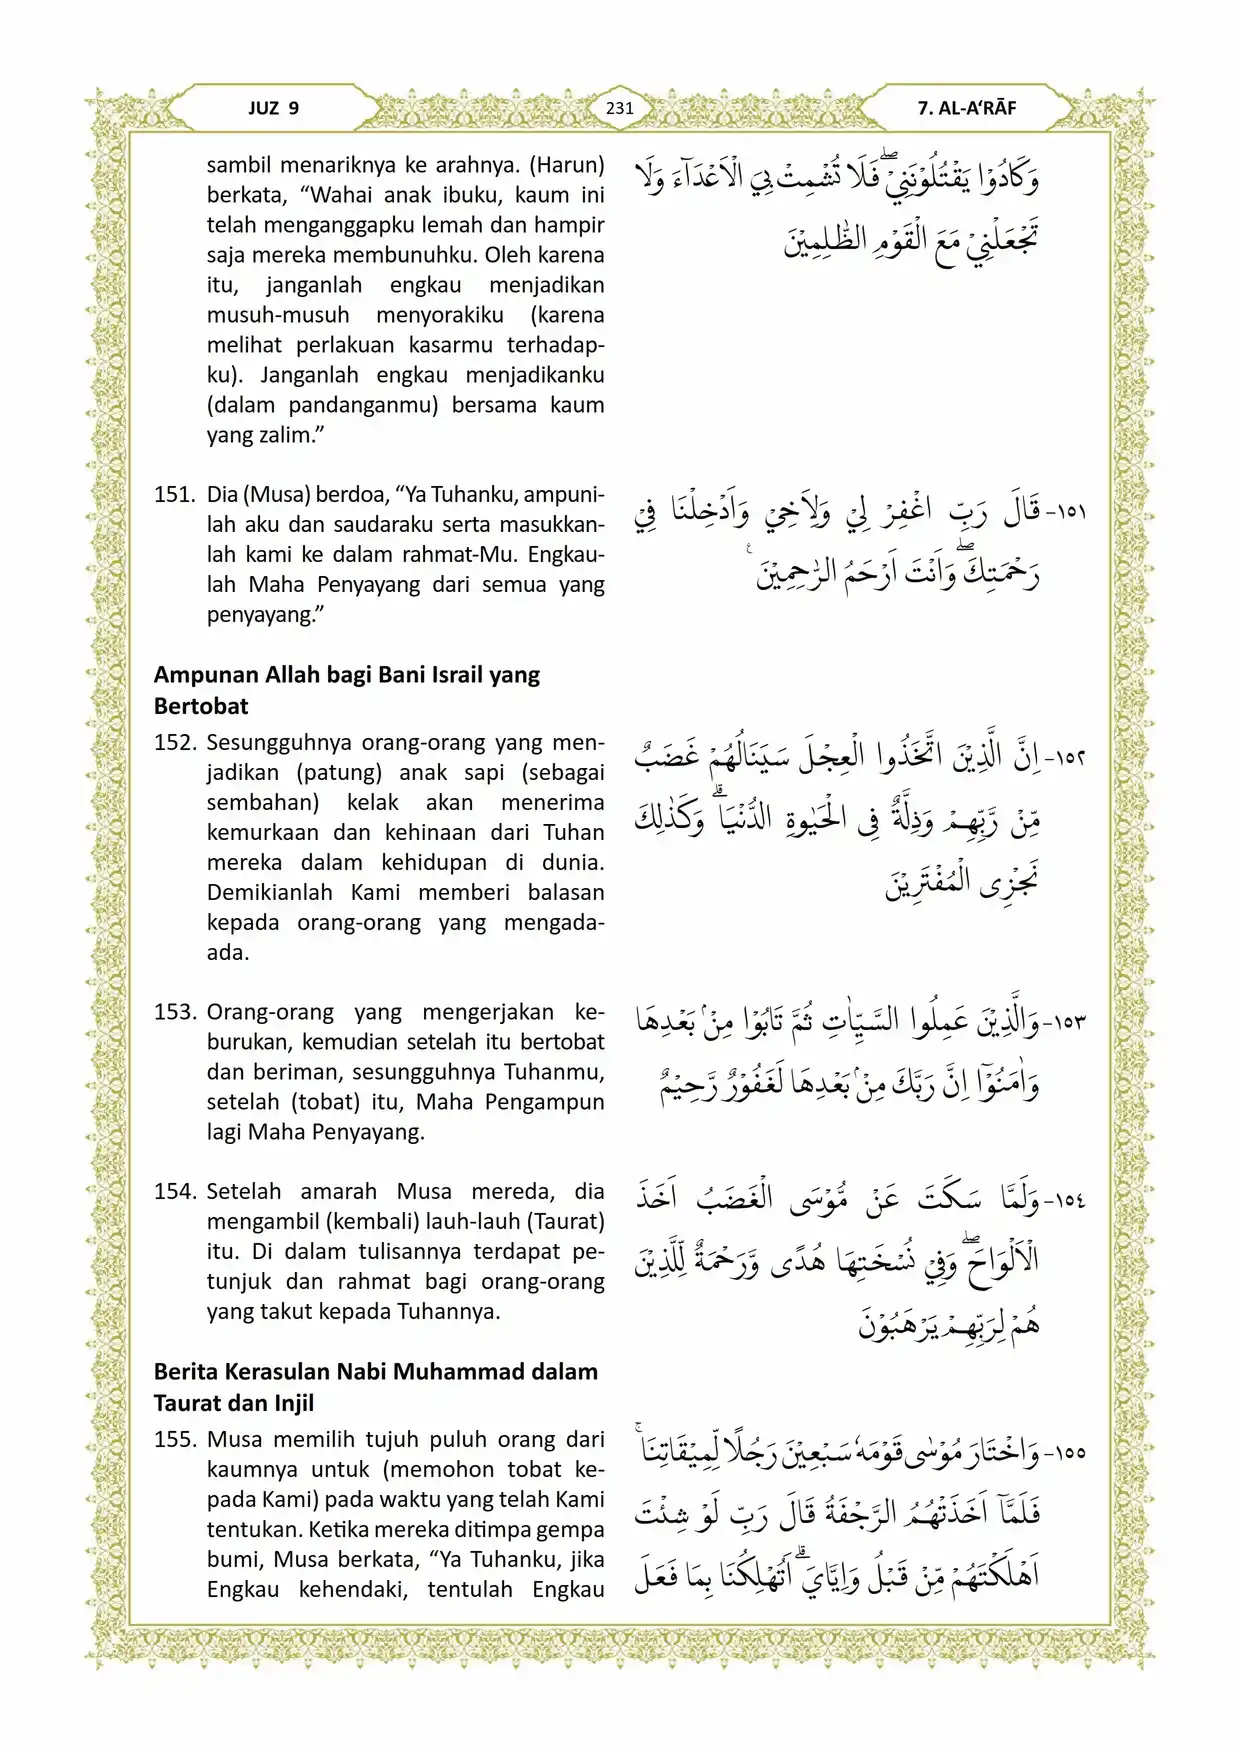 JUZ 9
231
7. AL-A‘RĀF
sambil menariknya ke arahnya. (Harun)
berkata, “Wahai anak ibuku, kaum ini
telah menganggapku lemah dan hampir
saja mereka membunuhku. Oleh karena
itu, janganlah engkau menjadikan
musuh-musuh menyorakiku (karena
melihat perlakuan kasarmu terhadap-
ku). Janganlah engkau menjadikanku
(dalam pandanganmu) bersama kaum
yang zalim.”
وَكَادُوْا يَقْتُلُوْنَنِيْۖ فَلَا تُشْمِتْ بِيَ الْاَعْدَاۤءَ وَلَا
تَجْعَلْنِيْ مَعَ الْقَوْمِ الظّٰلِمِيْنَ
151. Dia (Musa) berdoa, “Ya Tuhanku, ampuni-
lah aku dan saudaraku serta masukkan-
lah kami ke dalam rahmat-Mu. Engkau-
lah Maha Penyayang dari semua yang
penyayang.”
١٥١- قَالَ رَبِّ اغْفِرْ لِيْ وَلِاَخِيْ وَاَدْخِلْنَا فِيْ
رَحْمَتِكَۖ وَاَنْتَ اَرْحَمُ الرّٰحِمِيْنَ ࣖ
Ampunan Allah bagi Bani Israil yang
Bertobat
152. Sesungguhnya orang-orang yang men-
jadikan (patung) anak sapi (sebagai
sembahan) kelak akan menerima
kemurkaan dan kehinaan dari Tuhan
mereka dalam kehidupan di dunia.
Demikianlah Kami memberi balasan
kepada orang-orang yang mengada-
ada.
١٥٢- اِنَّ الَّذِيْنَ اتَّخَذُوا الْعِجْلَ سَيَنَالُهُمْ غَضَبٌ
مِّنْ رَّبِّهِمْ وَذِلَّةٌ فِى الْحَيٰوةِ الدُّنْيَاۗ وَكَذٰلِكَ
نَجْزِى الْمُفْتَرِيْنَ
153. Orang-orang yang mengerjakan ke-
burukan, kemudian setelah itu bertobat
dan beriman, sesungguhnya Tuhanmu,
setelah (tobat) itu, Maha Pengampun
lagi Maha Penyayang.
١٥٣- وَالَّذِيْنَ عَمِلُوا السَّيِّاٰتِ ثُمَّ تَابُوْا مِنْۢ بَعْدِهَا
وَاٰمَنُوْٓا اِنَّ رَبَّكَ مِنْۢ بَعْدِهَا لَغَفُوْرٌ رَّحِيْمٌ
154. Setelah amarah Musa mereda, dia
mengambil (kembali) lauh-lauh (Taurat)
itu. Di dalam tulisannya terdapat pe-
tunjuk dan rahmat bagi orang-orang
yang takut kepada Tuhannya.
١٥٤- وَلَمَّا سَكَتَ عَنْ مُّوْسَى الْغَضَبُ اَخَذَ
الْاَلْوَاحَۖ وَفِيْ نُسْخَتِهَا هُدًى وَّرَحْمَةٌ لِّلَّذِيْنَ
هُمْ لِرَبِّهِمْ يَرْهَبُوْنَ
Berita Kerasulan Nabi Muhammad dalam
Taurat dan Injil
155. Musa memilih tujuh puluh orang dari
kaumnya untuk (memohon tobat ke-
pada Kami) pada waktu yang telah Kami
tentukan. Ketika mereka ditimpa gempa
bumi, Musa berkata, “Ya Tuhanku, jika
Engkau kehendaki, tentulah Engkau
١٥٥- وَاخْتَارَ مُوْسٰى قَوْمَهٗ سَبْعِيْنَ رَجُلًا لِّمِيْقَاتِنَاۚ
فَلَمَّآ اَخَذَتْهُمُ الرَّجْفَةُ قَالَ رَبِّ لَوْ شِئْتَ
اَهْلَكْتَهُمْ مِّنْ قَبْلُ وَاِيَّايَۗ اَتُهْلِكُنَا بِمَا فَعَلَ